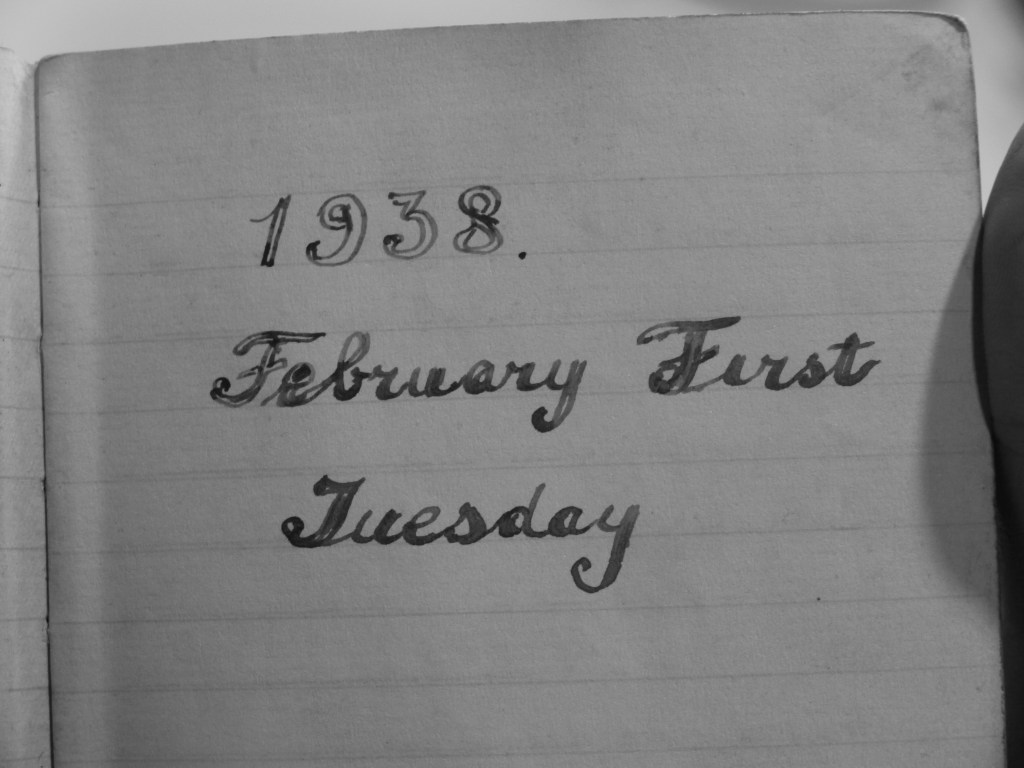 1938.
February First
Tuesday